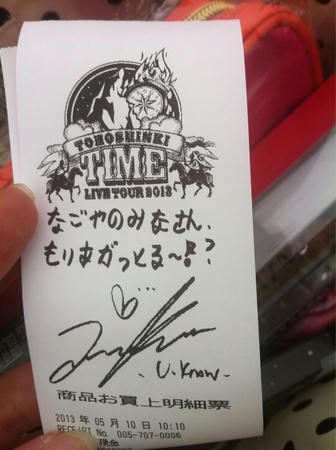 TOHOSHINKI
TIME
LIVE TOUR 2013
なごやのみなさん、
もりあがっとる〜!?
U.Know
商品お買上明細票
2013年05月10日 10:10
RECEIPT No. 005-707-0006
現金